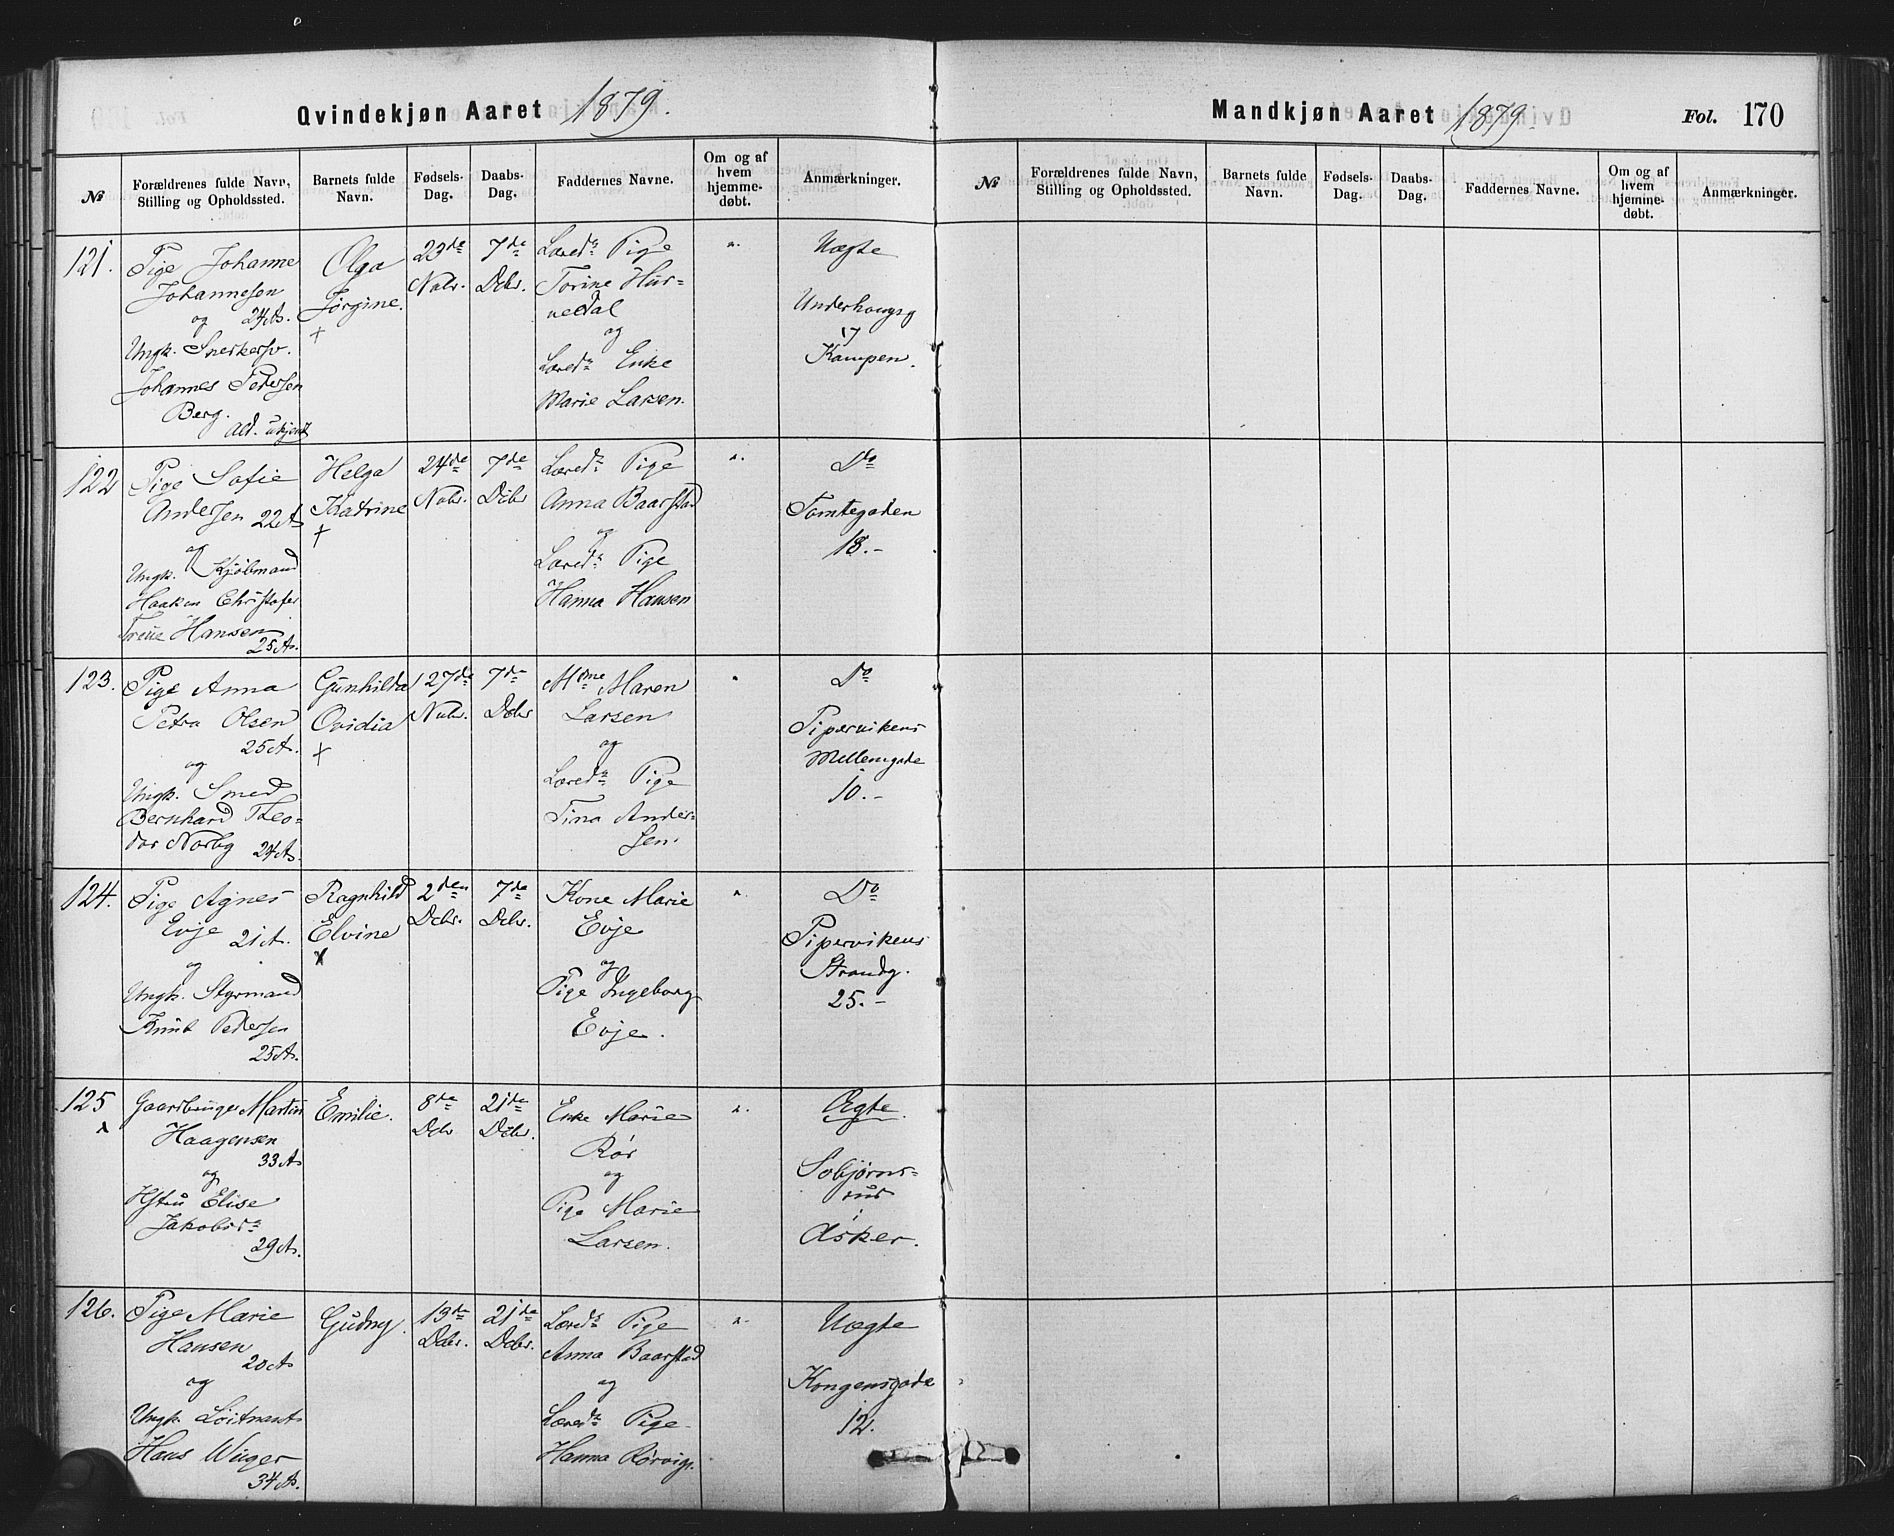 Qvindekjøn Aaret 1879.
№
Forældrenes fulde Navn, Stilling og Opholdssted.
Barnets fulde Navn.
Fødsels-Dag.
Daabs-Dag.
Faddernes Navne.
Om og af hvem hjemme-døbt.
Anmærkninger.
121.
Pige Johanne
Johannesen
og 24 A.
Ungk. Snerkersv.
Johannes Pedersen
Berg.
Ald. ukjent
Olga
Jørgine.
+
23de
Nobr.
7de
Dcbr.
Læreda Pige
Torine Hur-
neldal
og
Læreda Enke
Marie Larsen.
"
Uægte
Underhougsg
17
Kampen.
122
Pige Sofie
Andersen 22 A
og
Ungk. Kjøbmand
Haaken Christofer
Hansen
25 A.
Helga
Katrine
+
24de
Nobr.
7de
Dcbr
Læreda Pige
Anna Baarstad
og
Læreda Pige
Hanna Hansen
"
Do
Tomtegaden
18.-
123.
Pige Anna
Petra Olsen
25 A.
og
Ungk. Smed
Bernhard Theo-
dor Norby 24 A.
Gunhilda
Ovidia
+
27de
Nobr.
7de
Dcbr
Mdme Maren
Larsen
og
Læreda Pige
Tina Ander-
sen.
"
Do
Pipervikens
Mellemgade
10.-
124.
Pige Agnes
Evje 21 A.
og
Ungk. Styrmand
Knut Pedersen
25 A.
Ragnhild
Elvine
x
2den
Dcbr.
7de
Dcbr.
Kone Marie
Evje
og
Pige Ingeborg
Evje.
"
Do
Pipervikens
Strandg.
25.-
125
Gaardbruger Martin
Haagensen
33 A
og
Hstru Elise
Jakobsda
29 A.
Emilie.
8de
Dcbr
21de
Dcbr.
Enke Marie
Rør
og
Pige Marie
Larsen.
"
Ægte.
Solbjørns-
rud
i
Asker.
126.
Pige Marie
Hansen
20 A
og
Ungk. Løitnant
Hans
34 A.
Gudny.
13de
Dcbr.
21de
Dcbr.
Læreda Pige
Anna Baarstad
og
Læreda Pige
Hanna Rørvig.
"
Uægte
Kongensgade
12.
Mandkjøn Aaret 1879. Fol. 170
№
Forældrenes fulde Navn, Stilling og Opholdssted.
Barnets fulde Navn.
Fødsels-Dag.
Daabs-Dag.
Faddernes Navne.
Om og af hvem hjemme-døbt.
Anmærkninger.